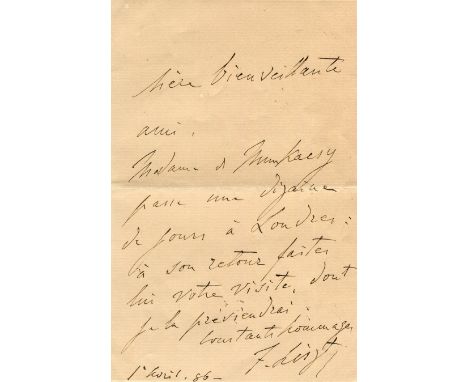 bienveillante
amie,
Madame de Munkacsy
passe une dizaine
de jours à Londres:
à son retour faites
lui votre visite, dont
je la préviendrai.
Constants hommages
F. Liszt
1er Avril. 86-